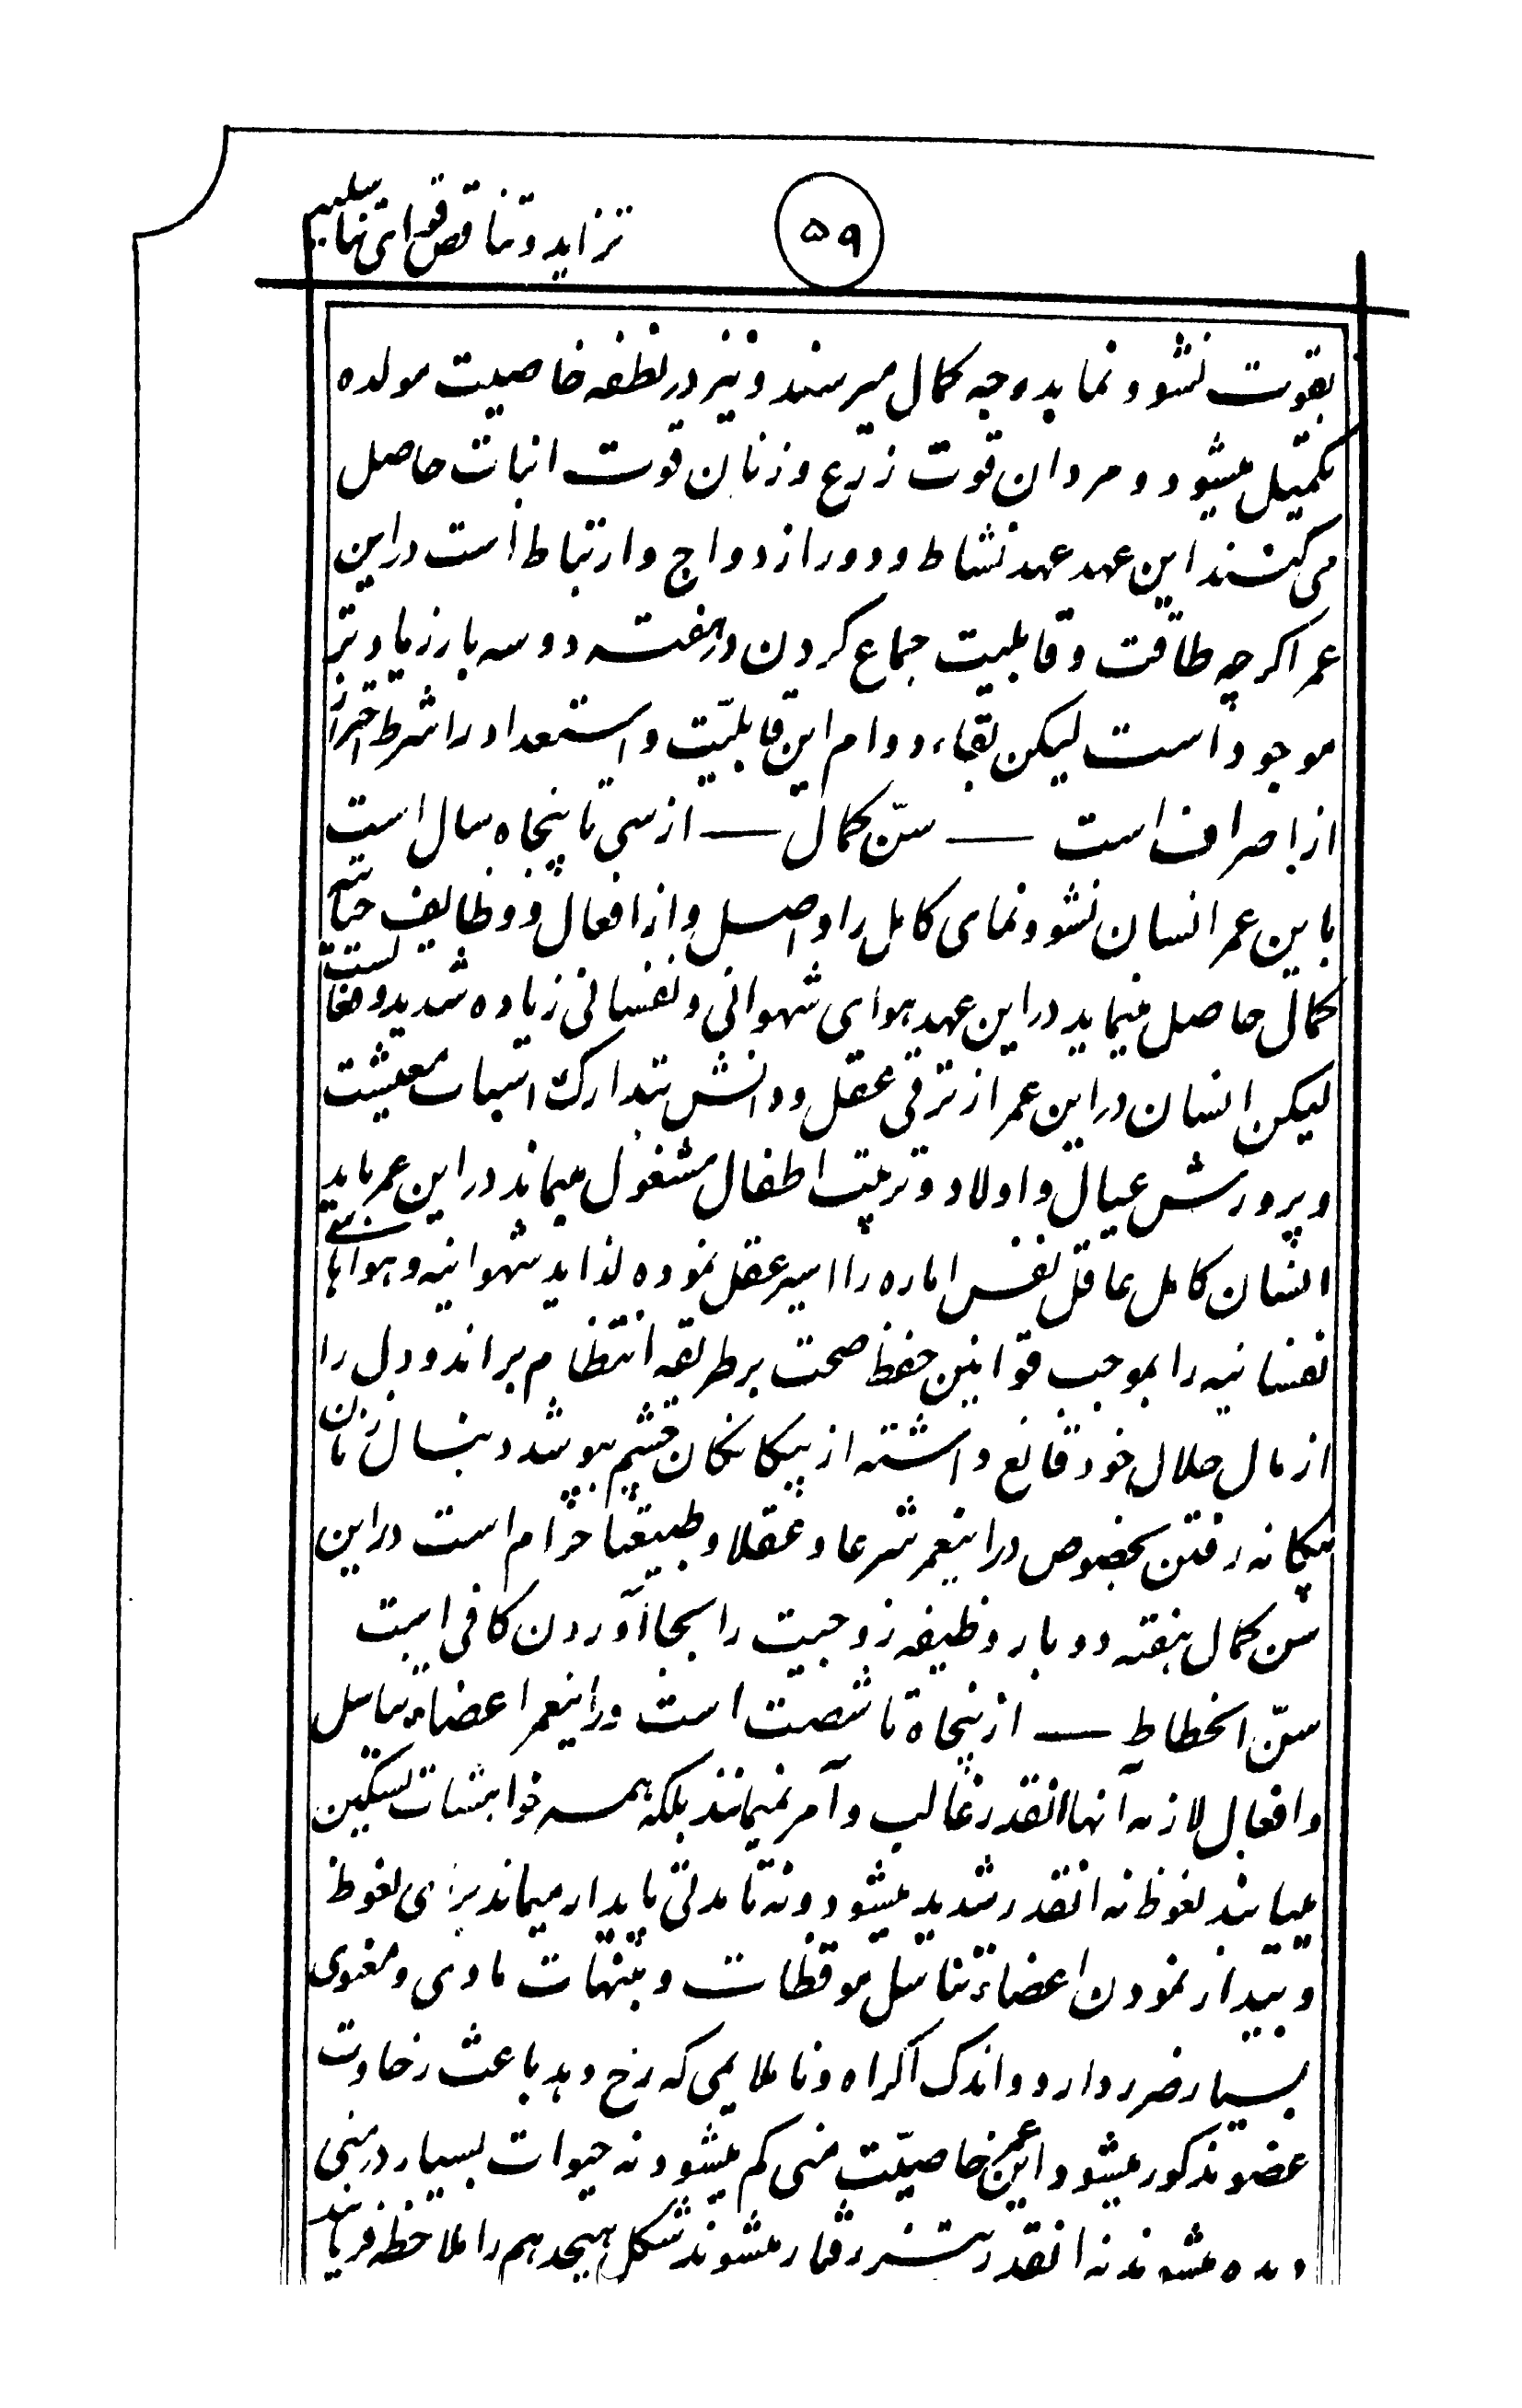 ۵۹
تزاید و تناقص قوای تناسلیه
بقوت نشو و نما بدرجه کمال میرسند و نیز در نطفه خاصیت مولده
تکمیل میشود و مردان قوت زرع و زنان قوت انبات حاصل
می کنند این عهد عهد نشاط و دور ازدواج و ارتباط است در این
عمر اگرچه طاقت و قابلیت جماع کردن در هفته دو سه بار زیادتر
موجود است لیکن بقاء و دوام این قابلیّت و استعداد را شرط احتراز
از اصراف است — سنّ کمال — از سی تا پنجاه سال است
باین عمر انسان نشو و نمای کامل را واصل و از افعال و وظایف حیاتیه
کمال حاصل مینماید در این عهد هوای شهوانی و نفسانی زیاده شدید و
لیکن انسان در این عمر از ترقی عقل و دانش بتدارک اسباب معیشت
و پرورش عیال و اولاد و تربیت اطفال مشغول میماند در این عمر باید
انسان کامل عاقل نفس اماره را اسیر عقل نموده لذاید شهوانیه و هواهای
نفسانیه را بموجب قوانین حفظ صحت بر طریقه انتظام براند و دل را
از مال حلال خود قانع داشته از بیکانکان چشم بپوشد دنبال زنان
بیکانه رفتن بخصوص در اینعمر شرعا و عقلا و طبیعتا حرام است در این
سن کمال هفته دو بار وظیفه زوجیت را بجا آوردن کافی است
سنّ انحطاط — از پنجاه تا شصت است در اینعمر اعضاء تناسل
و افعال لازمه آنها انقدر غالب و آمر نمیمانند بلکه همه خواهشات تسکین
مییابند نغوظ نه انقدر شدید میشود و نه تا مدتی پایدار میماند برای نغوظ
و بیدار نمودن اعضاء تناسل موقظات و منبهات مادی و معنوی
بسیار ضرر دارد و اندک اکراه و ناملایمی که رخ دهد باعث رخاوت
عضو مذکور میشود این عمر خاصیّت منی کم میشود نه حیوات بسیار در منی
دیده میشوند نه انقدر تیز رفتار میشوند شکل هیجدهم را ملاحظه فرمایند